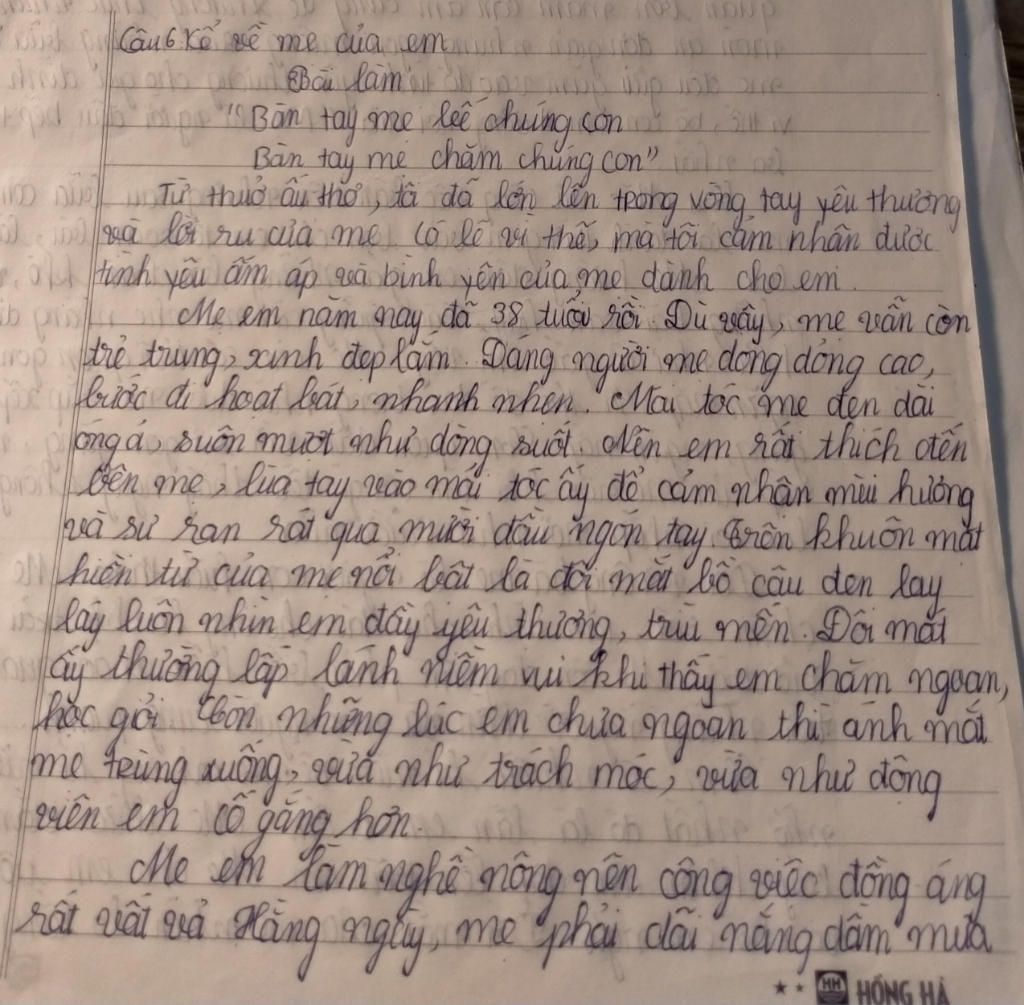 Câu 6 Kể về mẹ của em
Bài làm
"Bàn tay mẹ bế chúng con
Bàn tay mẹ chăm chúng con"
Từ thuở ấu thơ, tôi đã lớn lên trong vòng tay yêu thương
và lời ru của mẹ. Có lẽ vì thế, mà tôi cảm nhận được
tình yêu ấm áp và bình yên của mẹ dành cho em.
Mẹ em năm nay đã 38 tuổi rồi. Dù vậy, mẹ vẫn còn
trẻ trung, xinh đẹp lắm. Dáng người mẹ dong dỏng cao,
bước đi hoạt bát, nhanh nhẹn. Mái tóc mẹ đen dài
óng ả, suôn mượt như dòng suối. Nên em rất thích đến
bên mẹ, lùa tay vào mái tóc ấy để cảm nhận mùi hương
và sự ran rát qua mười đầu ngón tay. Trên khuôn mặt
hiền từ của mẹ nổi bật là đôi mắt bồ câu đen lay
láy luôn nhìn em đầy yêu thương, trìu mến. Đôi mắt
ấy thường lấp lánh niềm vui khi thấy em chăm ngoan,
học giỏi. Còn những lúc em chưa ngoan thì ánh mắt
mẹ trùng xuống, vừa như trách móc, vừa như động
viên em cố gắng hơn.
Mẹ em làm nghề nông nên công việc đồng áng
rất vất vả. Hằng ngày, mẹ phải dãi nắng dầm mưa
HH HỒNG HÀ